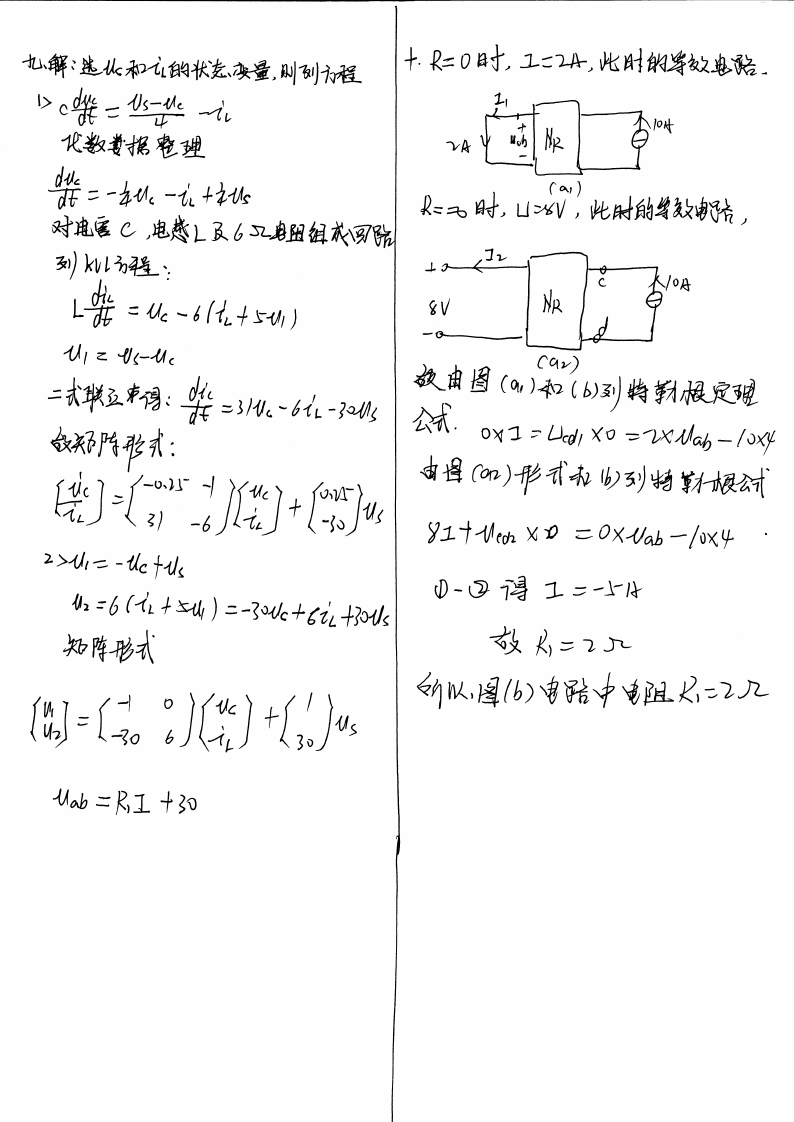 九、解:选uc和iL的状态变量,则列方程
1> C duc/dt = (us-uc)/4 - iL
代数数据整理
duc/dt = -¼uc - iL + ¼us
对电容C,电感L及6Ω电阻组成回路
列KVL方程:
L diL/dt = uc - 6(iL+5u1)
u1 = us-uc
二式联立求得: diL/dt = 31uc-6iL-30us
故矩阵形式:
[uc iL] = (-0.25 -1
31 -6)(uc iL) + (0.25 -30)us
2> u1 = -uc+us
u2 = 6(iL+5u1) = -30uc+6iL+30us
矩阵形式
[u1 u2] = (-1 0
-30 6)(uc iL) + (1 30)us
uab = R1I + 30
十. R=0时, I=2A, 此时的等效电路.
I1
2A + uab - NR 10A
(a1)
R=∞时, U=8V, 此时的等效电路,
I2
+ 8V - NR c d 10A
(a2)
故由图(a1)和(b)列特勒根定理
公式. 0×I = Ucd1×0 = 2×uab-10×4
由图(a2)形式和(b)列特勒根公式
8I+ucd2×0 = 0×uab-10×4
①-②得 I=-5A
故 R1=2Ω
所以,图(b)电路中电阻R1=2Ω